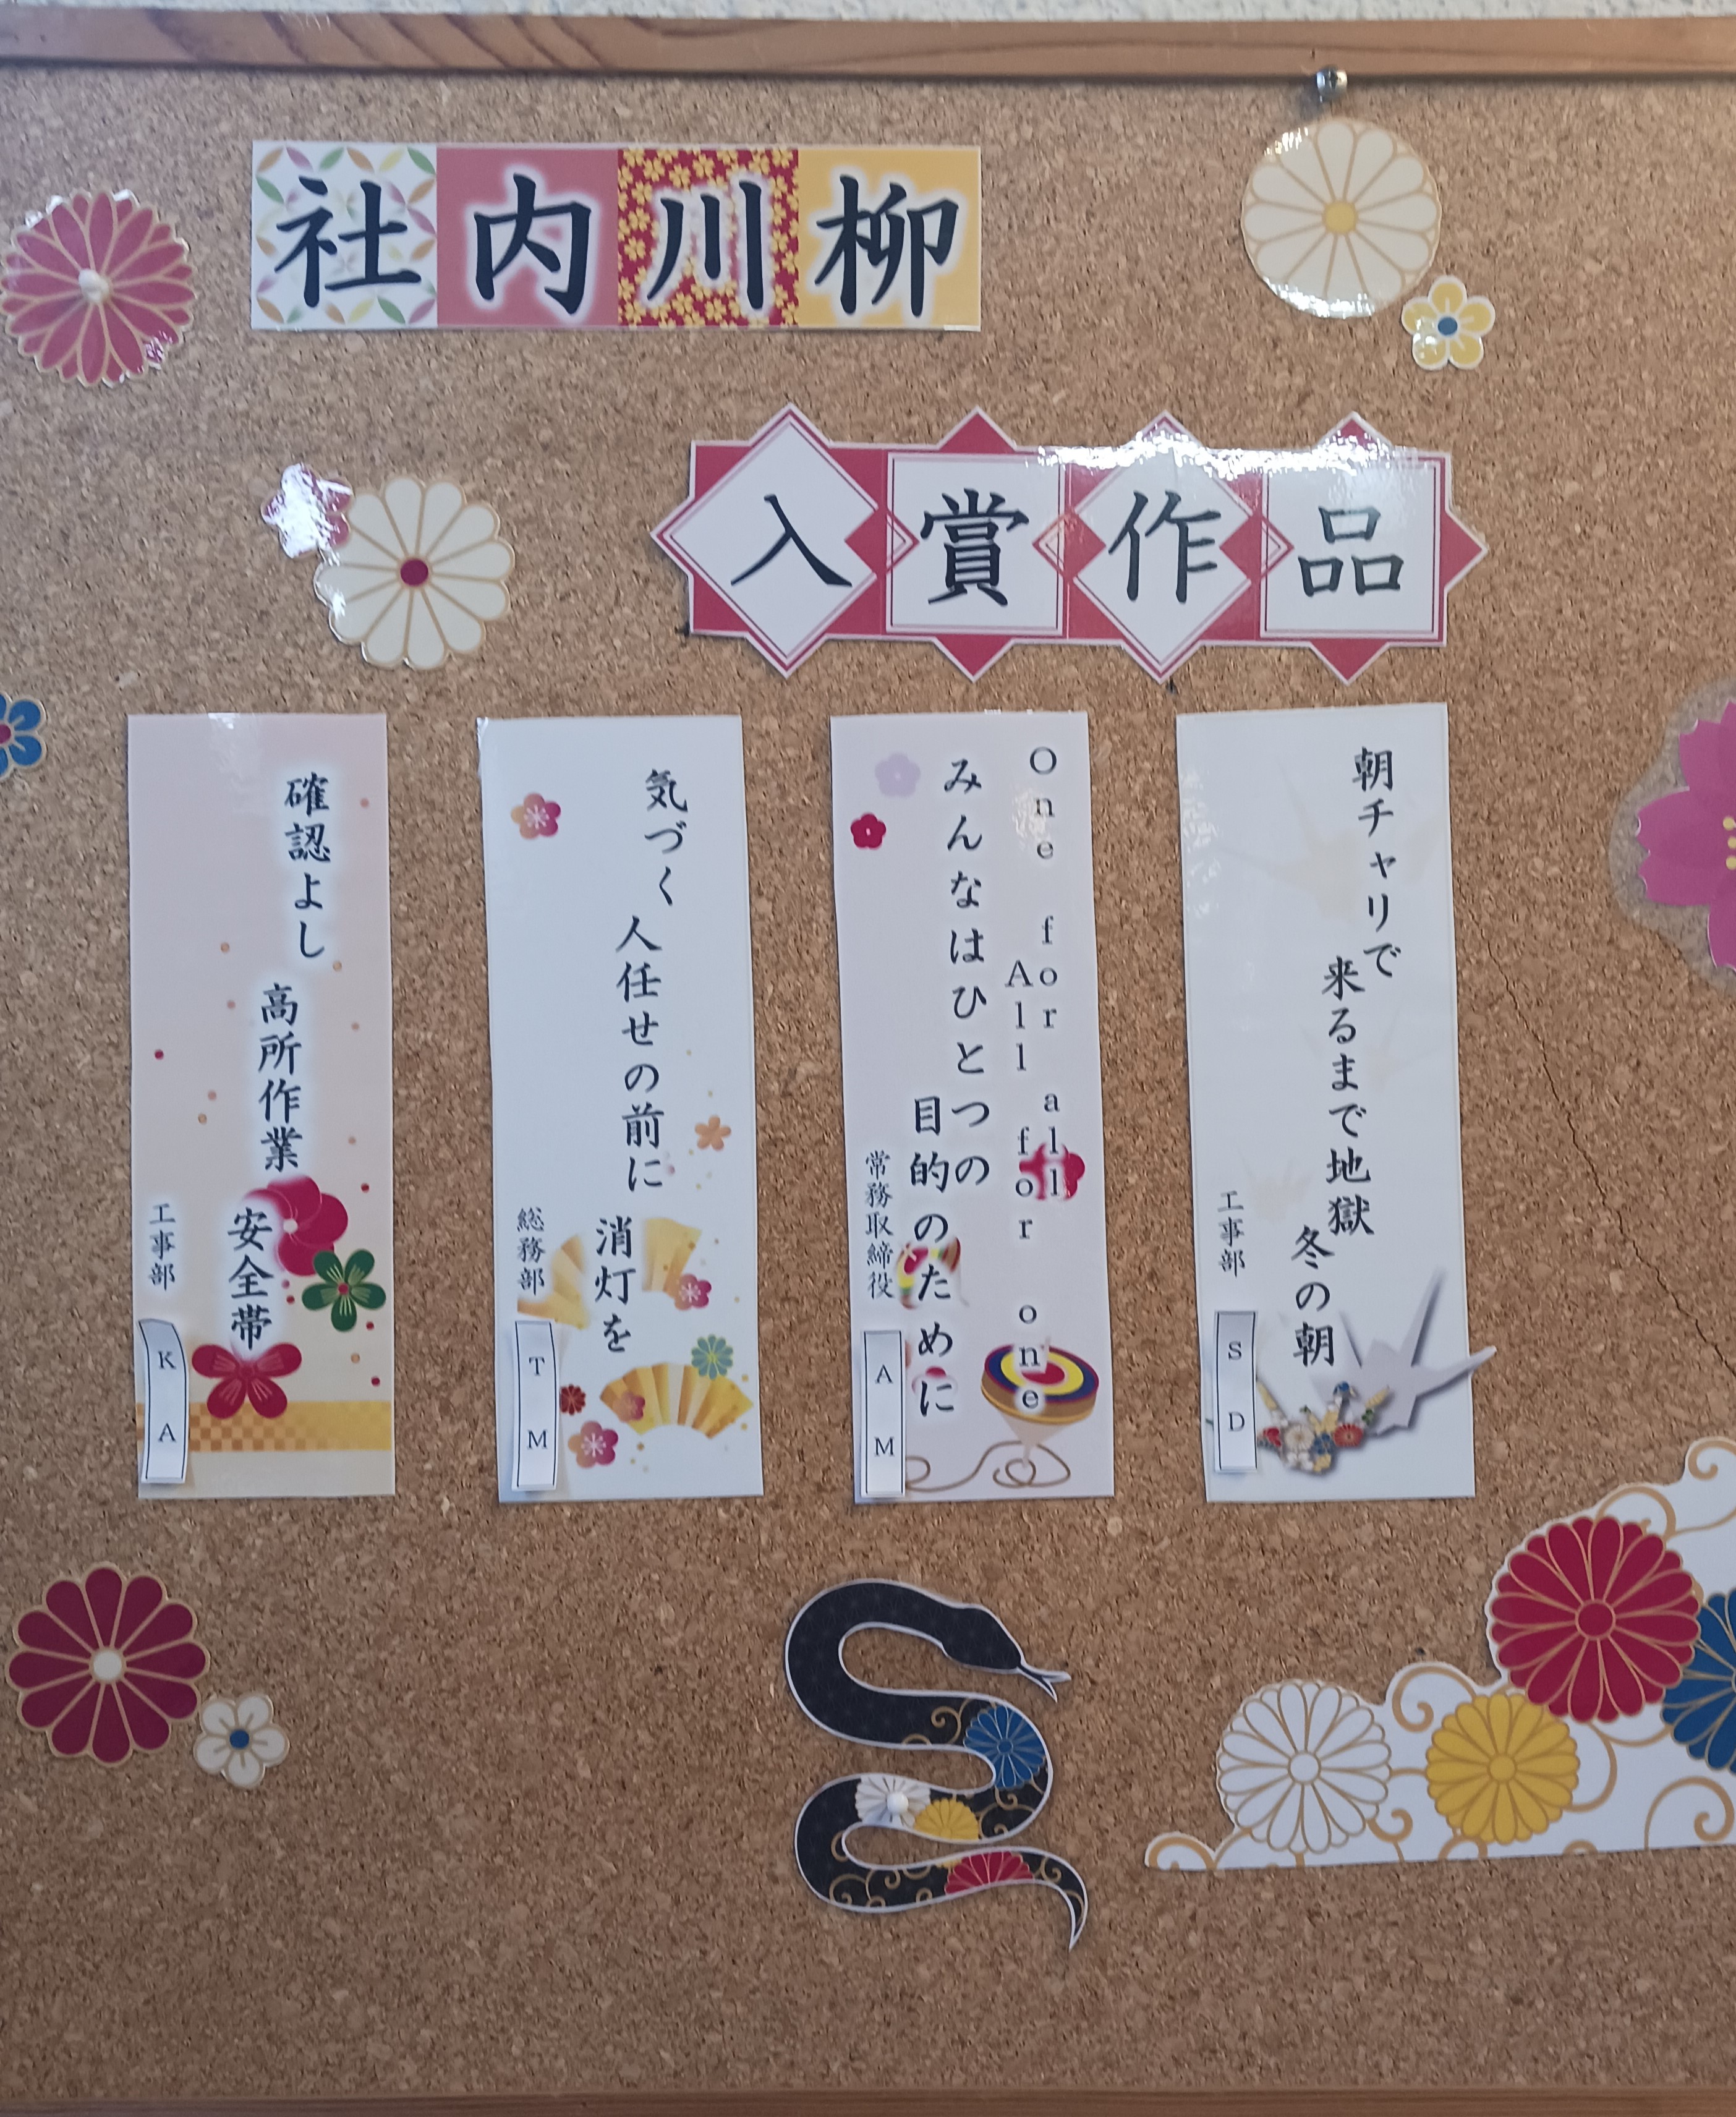 社内川柳
入賞作品
朝チャリで
来るまで地獄
冬の朝
工事部
S D
One for all
All for one
みんなはひとつの
目的のために
常務取締役
A M
気づく
人任せの前に
消灯を
総務部
T M
確認よし
高所作業
安全帯
工事部
K A